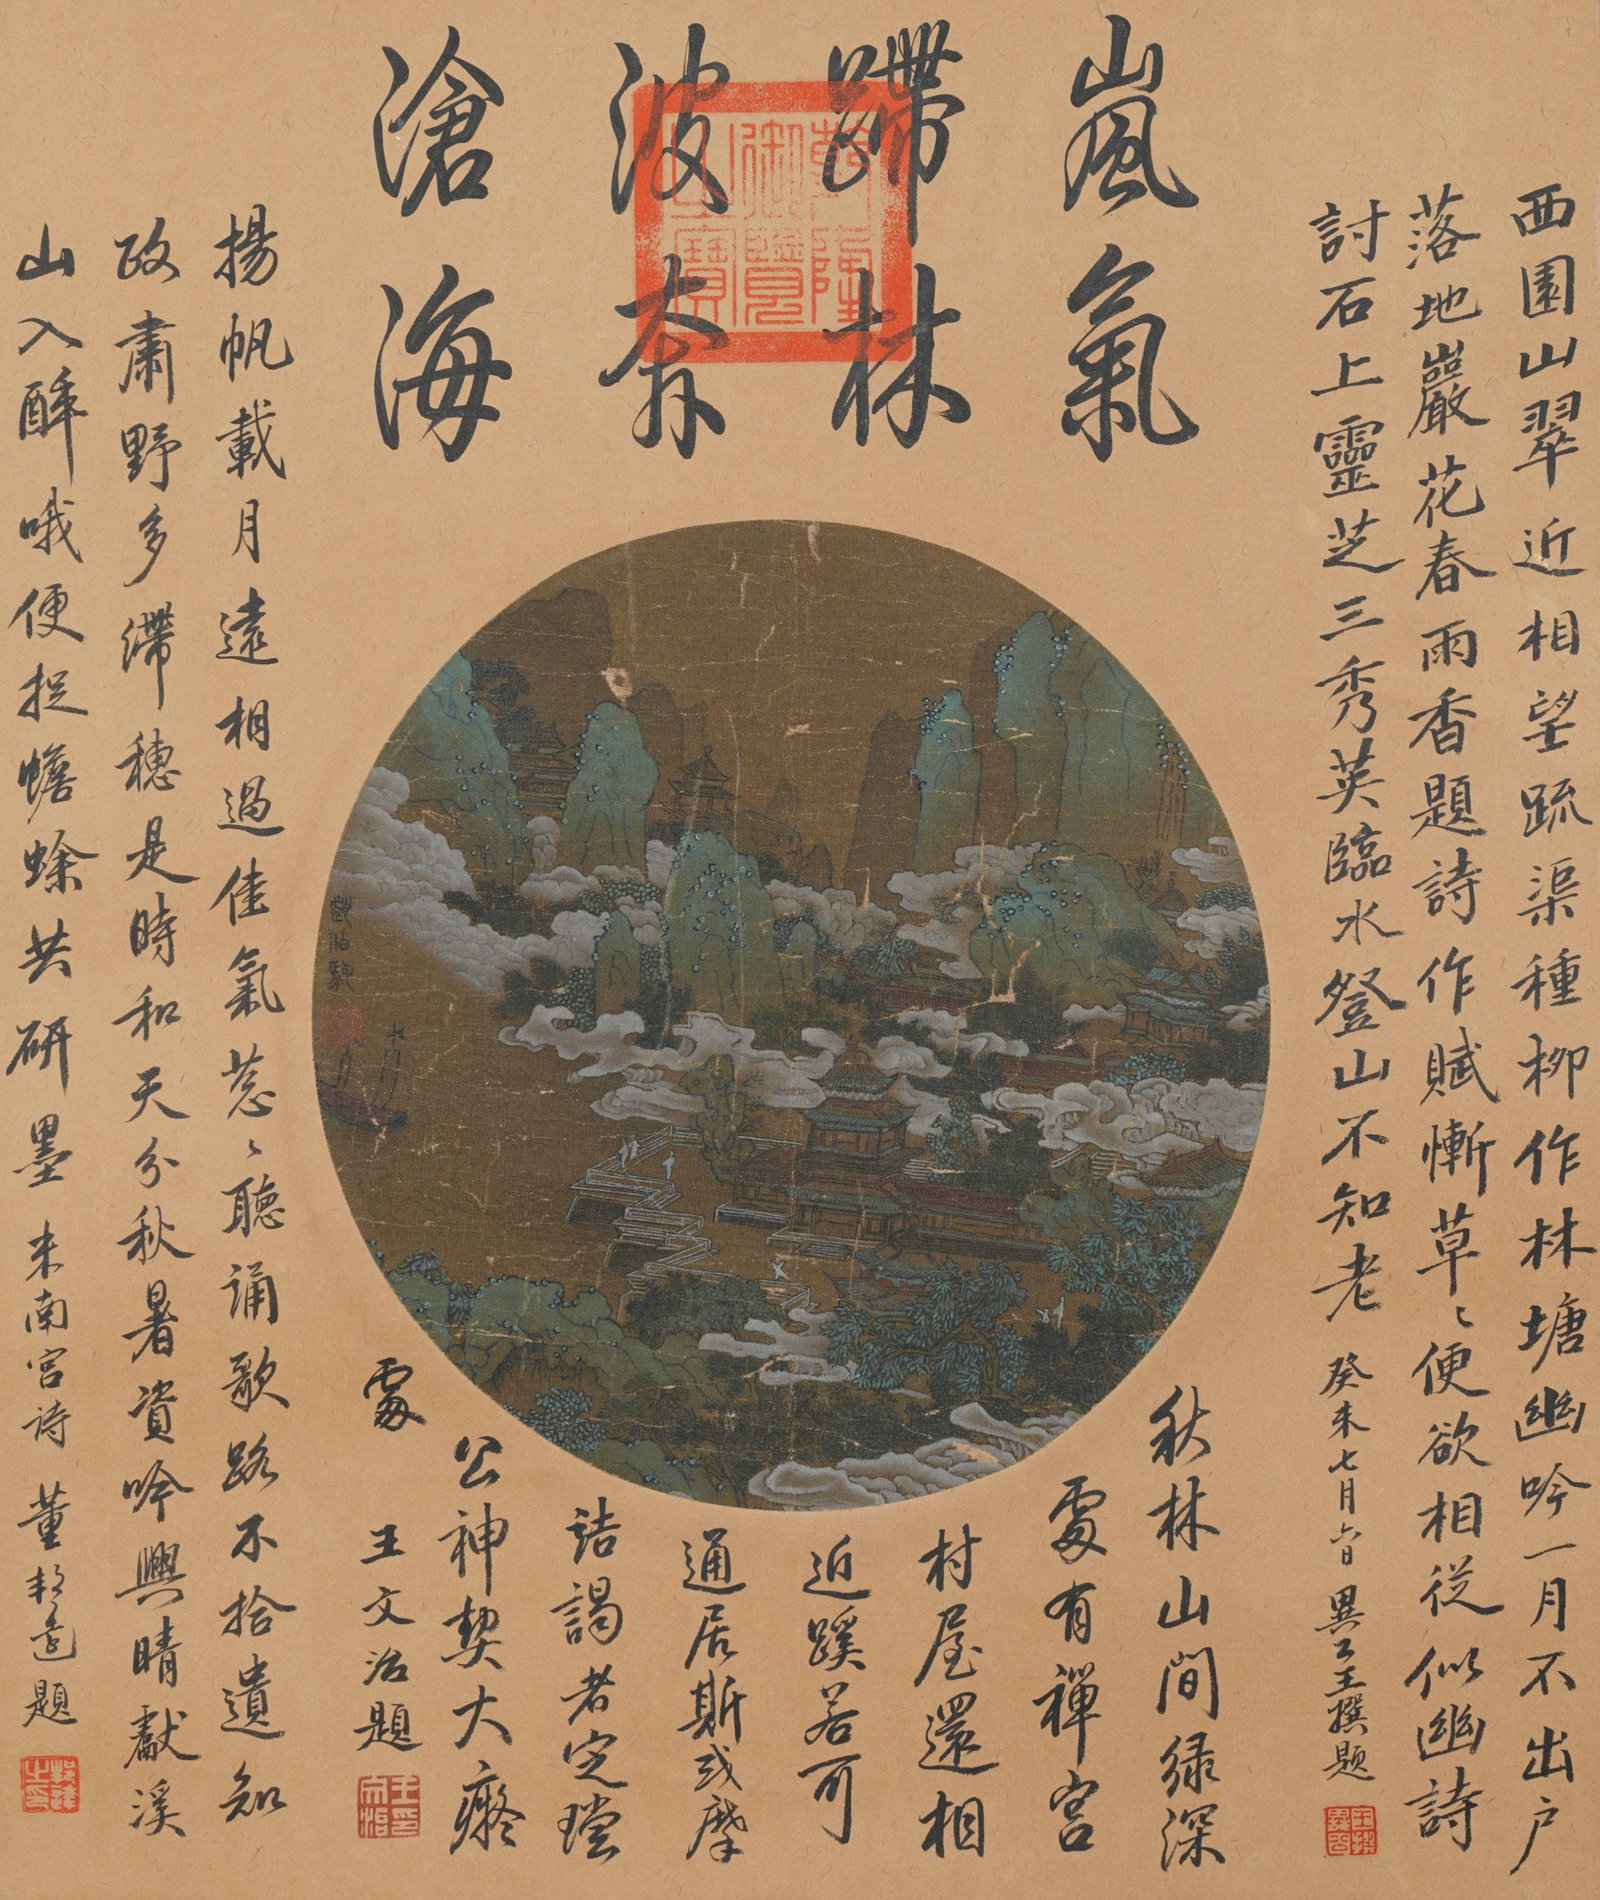 嵐氣
林
波
滄海
乾隆
御覽
之寶
西園山翠近相望疏渠種柳作林塘幽吟一月不出户
落地巖花春雨香題詩作賦慚草〻便欲相從似幽詩
討石上靈芝三秀英臨水登山不知老
癸未七月六日 異公王撰題
揚帆載月遠相過佳氣蔥〻聽誦歌路不拾遺知
政肅野多滯穗是時和天分秋暑資吟興晴獻溪
山入醉哦便捉蟾蜍共研墨 米南宮詩 董邦達題
趙伯駒
秋林山間绿深
處有禪宮
村屋還相
近蹊若可
通居斯或
詰謁者
公神契大癡
處
王文治題